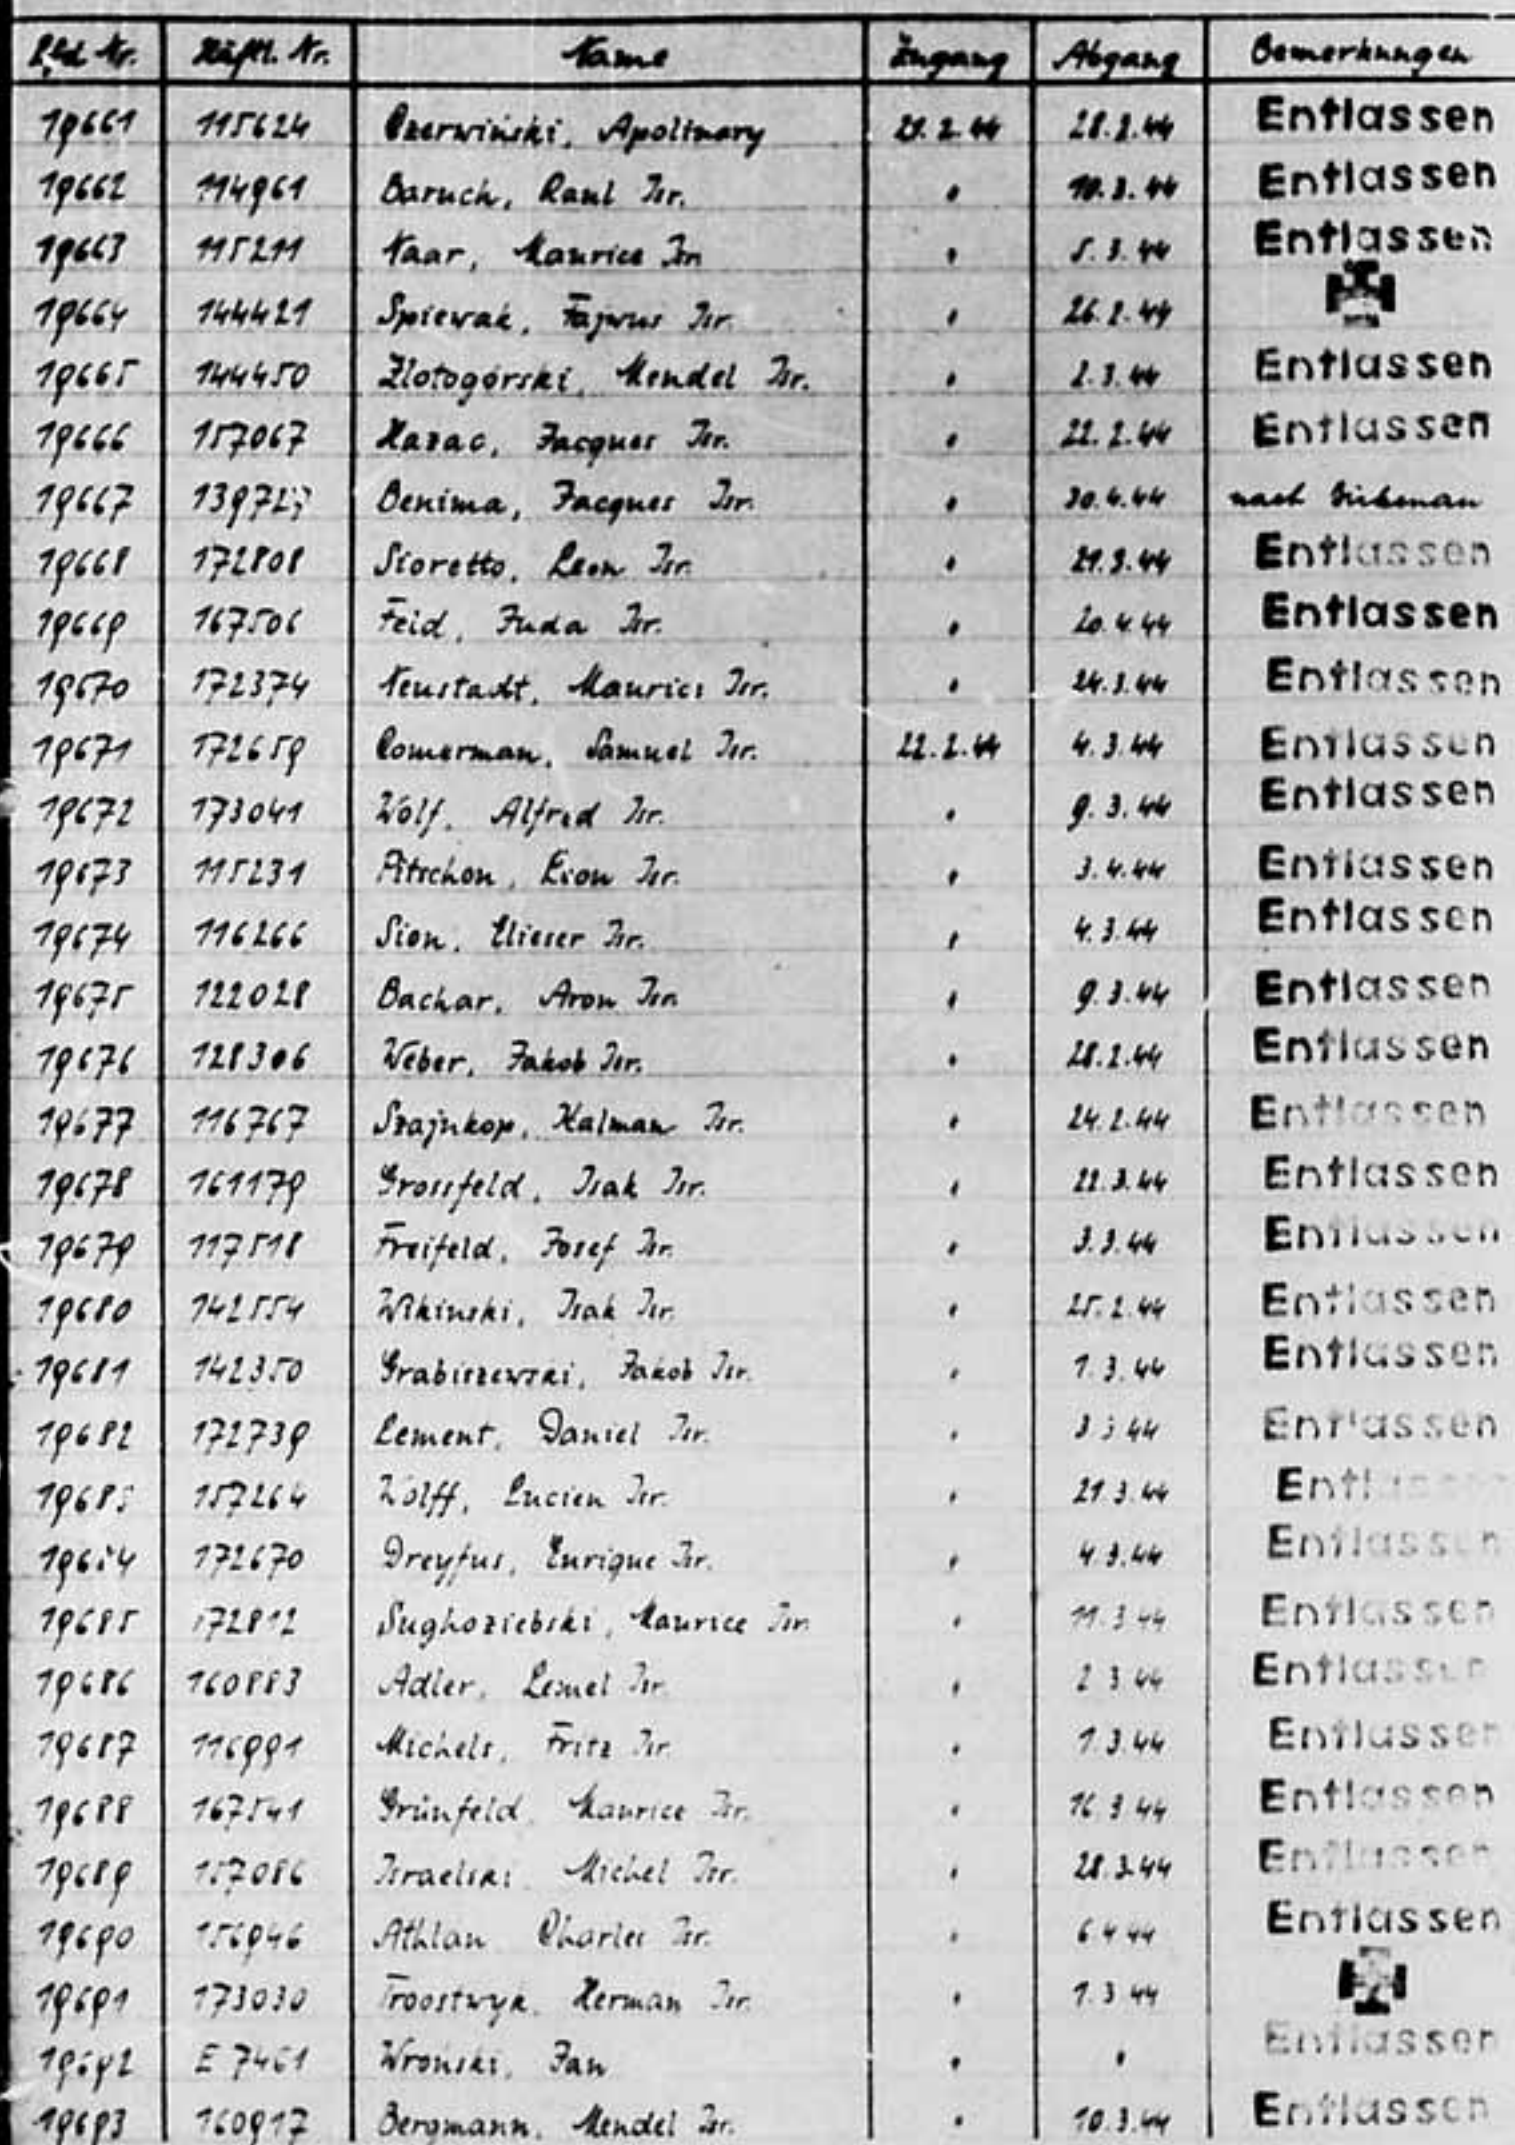 Lfd. Nr. Häftl. Nr. Name Zugang Abgang Bemerkungen
19661 115624 Czerwiński, Apolinary 21.2.44 28.2.44 Entlassen
19662 114961 Baruch, Raul Isr. " 10.3.44 Entlassen
19663 115211 Naar, Maurice Isr. " 5.3.44 Entlassen
19664 144421 Spiewak, Fajwus Isr. " 26.2.44
19665 144450 Zlotogórski, Mendel Isr. " 2.3.44 Entlassen
19666 157067 Hazac, Jacques Isr. " 22.2.44 Entlassen
19667 Benima, Jacques Isr. " 30.4.44 nach Birkenau
19668 172808 Storetto, Leon Isr. " 21.3.44 Entlassen
19669 167506 Feid, Juda Isr. " 20.4.44 Entlassen
19670 172374 Neustadt, Maurice Isr. " 24.3.44 Entlassen
19671 172659 Comerman, Samuel Isr. 22.2.44 4.3.44 Entlassen
19672 173041 Wolf, Alfred Isr. " 9.3.44 Entlassen
19673 115231 Pitschon, Leon Isr. " 3.4.44 Entlassen
19674 116266 Sion, Elieser Isr. " 4.3.44 Entlassen
19675 122028 Bachar, Aron Isr. " 9.3.44 Entlassen
19676 128306 Weber, Jakob Isr. " 28.2.44 Entlassen
19677 116767 Szajnkop, Kalman Isr. " 24.2.44 Entlassen
19678 161179 Grossfeld, Isak Isr. " 22.3.44 Entlassen
19679 117518 Freifeld, Josef Isr. " 3.3.44 Entlassen
19680 142554 Wikinski, Isak Isr. " 25.2.44 Entlassen
19681 142350 Grabiszewski, Jakob Isr. " 1.3.44 Entlassen
19682 172739 Lement, Daniel Isr. " 3.3.44 Entlassen
19683 157264 Wolff, Lucien Isr. " 21.3.44 Entlassen
19684 172670 Dreyfus, Enrique Isr. " 4.3.44 Entlassen
19685 172812 Sughoziebski, Maurice Isr. " 11.3.44 Entlassen
19686 160883 Adler, Lemel Isr. " 2.3.44 Entlassen
19687 116991 Michels, Fritz Isr. " 1.3.44 Entlassen
19688 167541 Grünfeld, Maurice Isr. " 16.3.44 Entlassen
19689 157086 Israelski, Michel Isr. " 28.3.44 Entlassen
19690 156946 Athlan Charles Isr. " 6.4.44 Entlassen
19691 173030 Troostwyk, Herman Isr. " 1.3.44
19692 E 7461 Wronski, Jan " " Entlassen
19693 160917 Bergmann, Mendel Isr. " 10.3.44 Entlassen